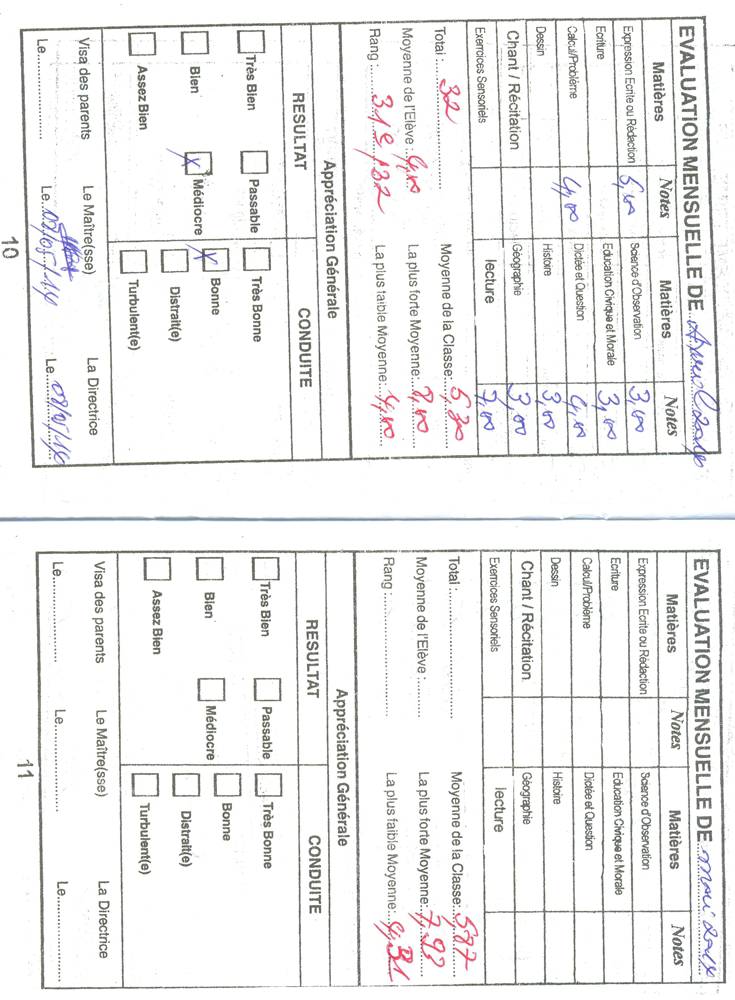 EVALUATION MENSUELLE DE Avril 2014
Matières Notes Matières Notes
Expression Ecrite ou Rédaction 5,00 Science d'Observation 3,00
Ecriture Education Civique et Morale 3,00
Calcul/Problème 4,00 Dictée et Question 4,00
Dessin Histoire 3,00
Chant / Récitation Géographie 3,00
Exercices Sensoriels lecture 7,00
Total :... 32 Moyenne de la Classe:... 5,30
Moyenne de l'Elève : 4,00 La plus forte Moyenne:
Rang :... 31e/32 La plus faible Moyenne:.. 4,00
Appréciation Générale
RESULTAT CONDUITE
Très Bien Passable Très Bonne
Bien Médiocre Bonne
Assez Bien Distrait(e)
Turbulent(e)
Visa des parents Le Maître(sse) La Directrice
Le................ Le..07/05/14 Le..07/05/14
10
EVALUATION MENSUELLE DE mai 2014
Matières Notes Matières Notes
Expression Ecrite ou Rédaction Science d'Observation
Ecriture Education Civique et Morale
Calcul/Problème Dictée et Question
Dessin Histoire
Chant / Récitation Géographie
Exercices Sensoriels lecture
Total :...................... Moyenne de la Classe:.. 5,87
Moyenne de l'Elève :.......... La plus forte Moyenne:. 7,93
Rang :...................... La plus faible Moyenne:.. 4,31
Appréciation Générale
RESULTAT CONDUITE
Très Bien Passable Très Bonne
Bien Médiocre Bonne
Assez Bien Distrait(e)
Turbulent(e)
Visa des parents Le Maître(sse) La Directrice
Le................ Le................ Le................
11